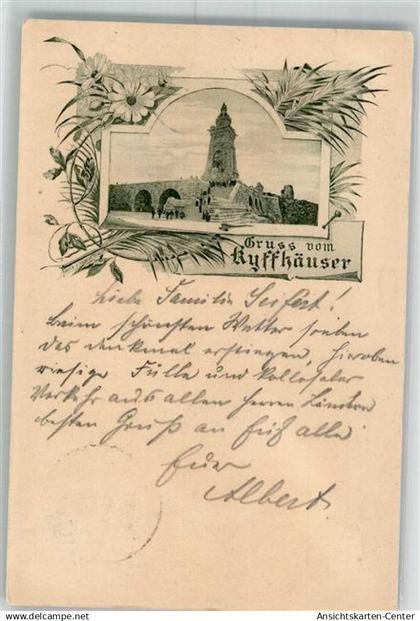 Gruss vom
Kyffhäuser
Liebe Familie Seifert!
beim schönsten Wetter soeben
das denkmal erstiegen, hieroben
riesige Fülle und kollosaler
Verkehr aus allen Herren Länder
besten Gruß an Euch alle
Euer
Albert.
oldthing
Ansichtskarten-Center